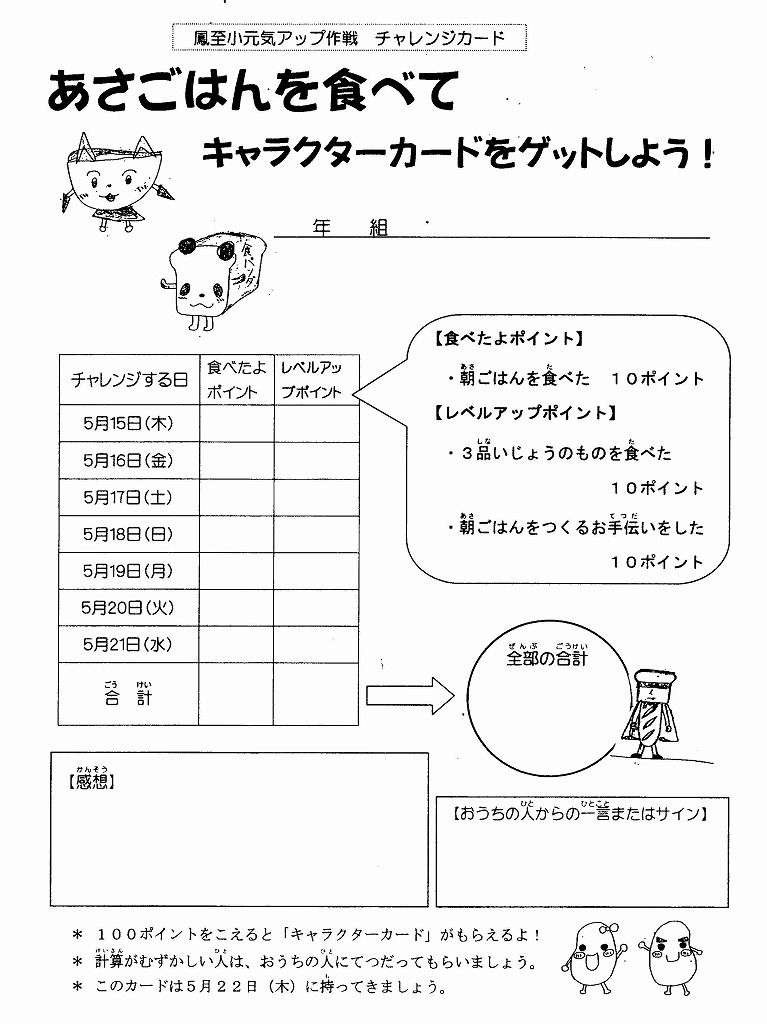 鳳至小元気アップ作戦　チャレンジカード
あさごはんを食べて
キャラクターカードをゲットしよう！
年　組
食パンダ
【食べたよポイント】
・朝ごはんを食べた　１０ポイント
【レベルアップポイント】
・３品いじょうのものを食べた
１０ポイント
・朝ごはんをつくるお手伝いをした
１０ポイント
チャレンジする日　食べたよポイント　レベルアップポイント
5月15日(木)
5月16日(金)
5月17日(土)
5月18日(日)
5月19日(月)
5月20日(火)
5月21日(水)
合計
全部の合計
【感想】
【おうちの人からの一言またはサイン】
＊　１００ポイントをこえると「キャラクターカード」がもらえるよ！
＊　計算がむずかしい人は、おうちの人にてつだってもらいましょう。
＊　このカードは５月２２日（木）に持ってきましょう。